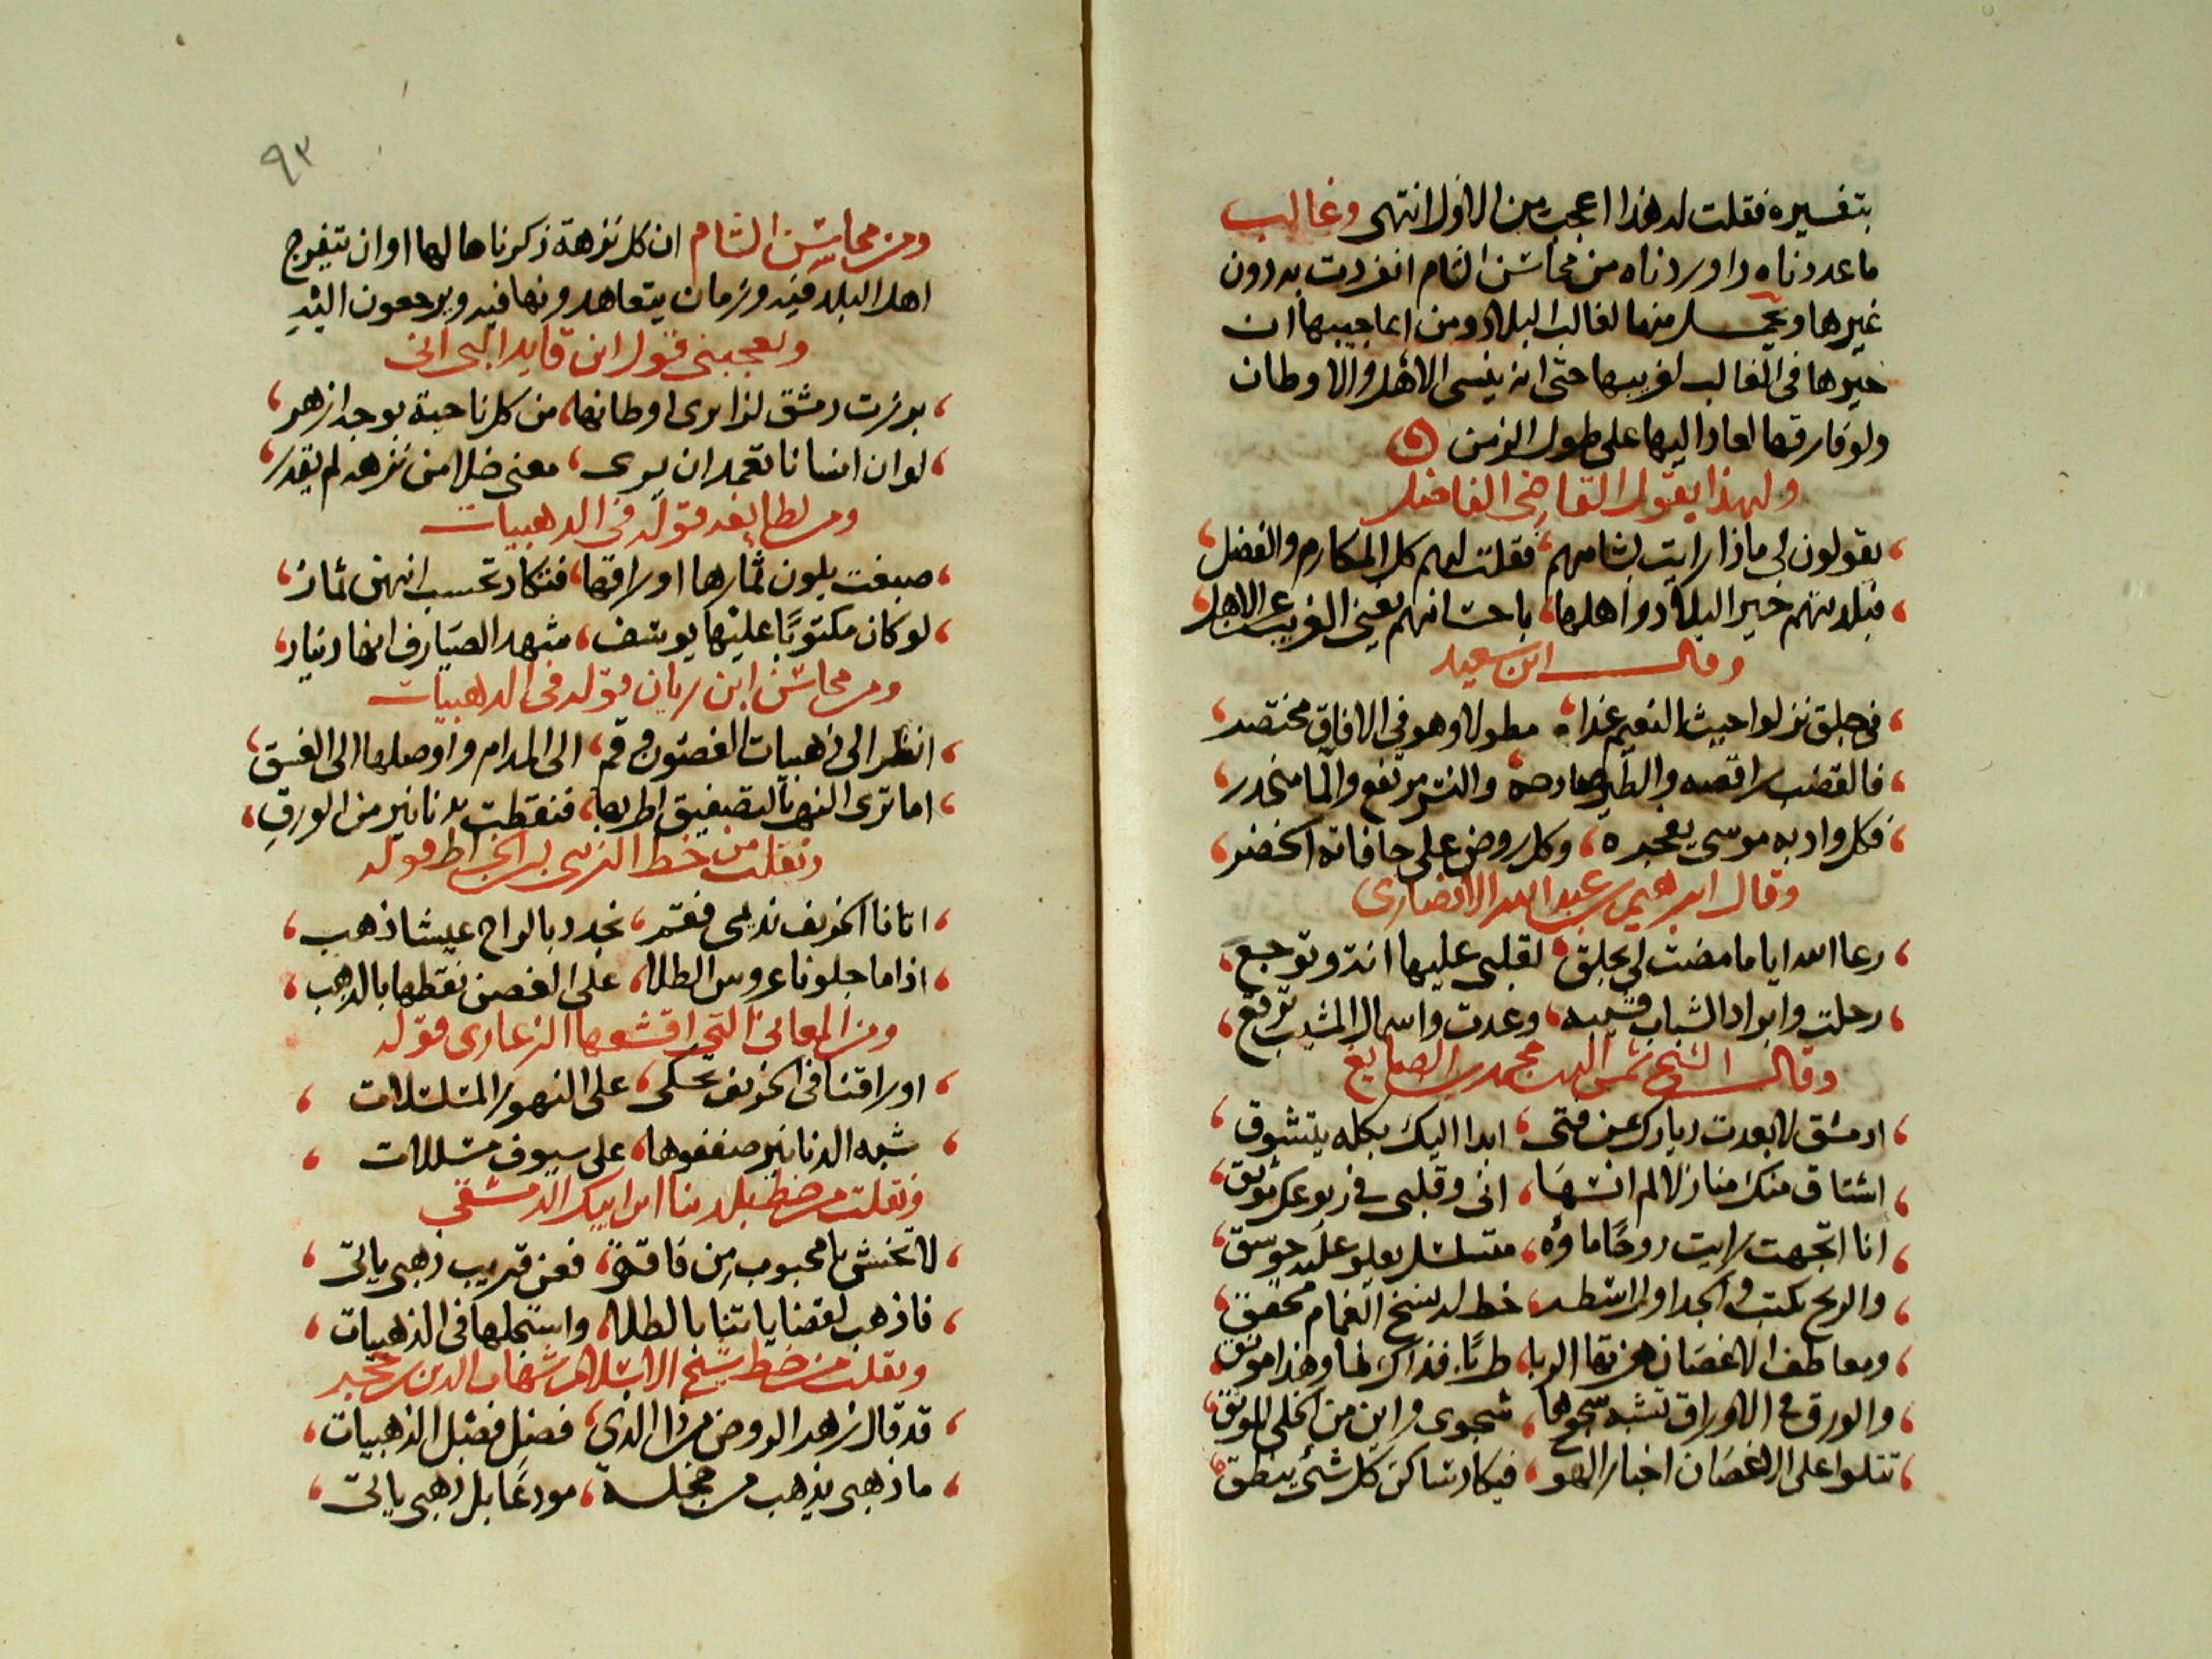 بتفسيره فقلت له هذا اعجب من الاول انتهى وغالب
ما عددناه واوردناه من محاسن الشام انفردت به دون
غيرها ويحمل منها لغالب البلاد ومن اعاجيبها ان
خيرها في الغالب لغريبها حتى انه ينسى الاهل والاوطان
ولو فارقها لعاد اليها على طول الزمن
ولهذا يقول القاضي الفاضل
يقولون لي ماذا رايت بشامهم فقلت لهم كل المكارم والفضل
فبلدتهم خير البلاد واهلها باحسانهم يغني الغريب عن الاهل
وقال ابن سعيد
في جلق نزلوا حيث النعيم غدا مطولا وهو في الافاق مختصر
فالقضب راقصه والطير صادحه والنشر مرتفع والما منحدر
فكل واد به موسى يفجره وكل روض على حافاته الخضر
وقال ابرهيم بن عبد الله الانصاري
رعا الله اياما مضت لي بجلق لقلبي عليها انة وتوجع
رحلت وابراد الشباب قشيبه وعدت واسمال المشيب ترقع
وقال الشيخ شمس الدين محمد بن الصايغ
ادمشق لا بعدت ديارك عن فتى ابدا اليك بكله يتشوق
اشتاق منك منازلا لم انسها اني وقلبي في ربوعك موثق
انا اتجهت رايت دوحا ماؤه متسلسل يعلو عليه جوسق
والريح يكتب في الجداول اسطرا خط له نسخ الغمام محقق
ومعاطف الاغصان هزتها الربا طربا فذاك لها وهذا مونق
والورق في الاوراق تشبه سجوها شجوى واين من الخلي الموثق
تتلوا على الاغصان اخبار الهو فيكاد ساكن كل شئ ينطق
٩٣
ومن محاسن الشام ان كل نزهة ذكرناها لها اوان يتفرج
اهل البلد فيه وزمان يتعاهدونها فيه ويرجعون اليه
ويعجبني قول ابن قايد البي اني
برزت دمشق لزايري اوطانها من كل ناحية بوجه ازهر
لو ان انسانا تعمد ان يرى معنى خلا من نزهه لم يقدر
ومن لطايفه قوله في الدهبيات
صبغت بلون ثمارها اوراقها فتكاد تحسب انهن ثمار
لو كان مكتوبا عليها يوسف شهد الصيارف انها دينار
ومن محاسن ابن ريان قوله في الدهبيات
انظر الى ذهبيات الغصون وقم الى المدام واوصلها الى الغسق
اما ترى النهر بالتصفيق اطربها فنقطت بدنانير من الورق
ونقلت من خط الزين بن الخراط قوله
اتانا الخريف نديمي فقم نجدد بالراح عيشا ذهب
اذا ما جلونا عروس الطلا على الغصن نقطها بالدهب
ومن المعاني التي اقشعها الزغاري قوله
اوراقنا في الخريف تحكى على النهور المتسلسلات
شبه الدنانير صففوها على سيوف مسللات
ونقلت من خط بلدينا ابن ايبك الدمشقي
لا تخش يا محبوب من فاقة فعن قريب ذهبي ياتى
فاذهب لقضا ياتنا بالطلا واستجلها في الذهبيات
ونقلت من خط شيخ الاسلام شهاب الدين بن حجر
قد قال زهر الروض من ذا الذي فضل فضل الذهبيات
ما ذهبي يذهب من مجلسة مودعا بل ذهبي ياتى